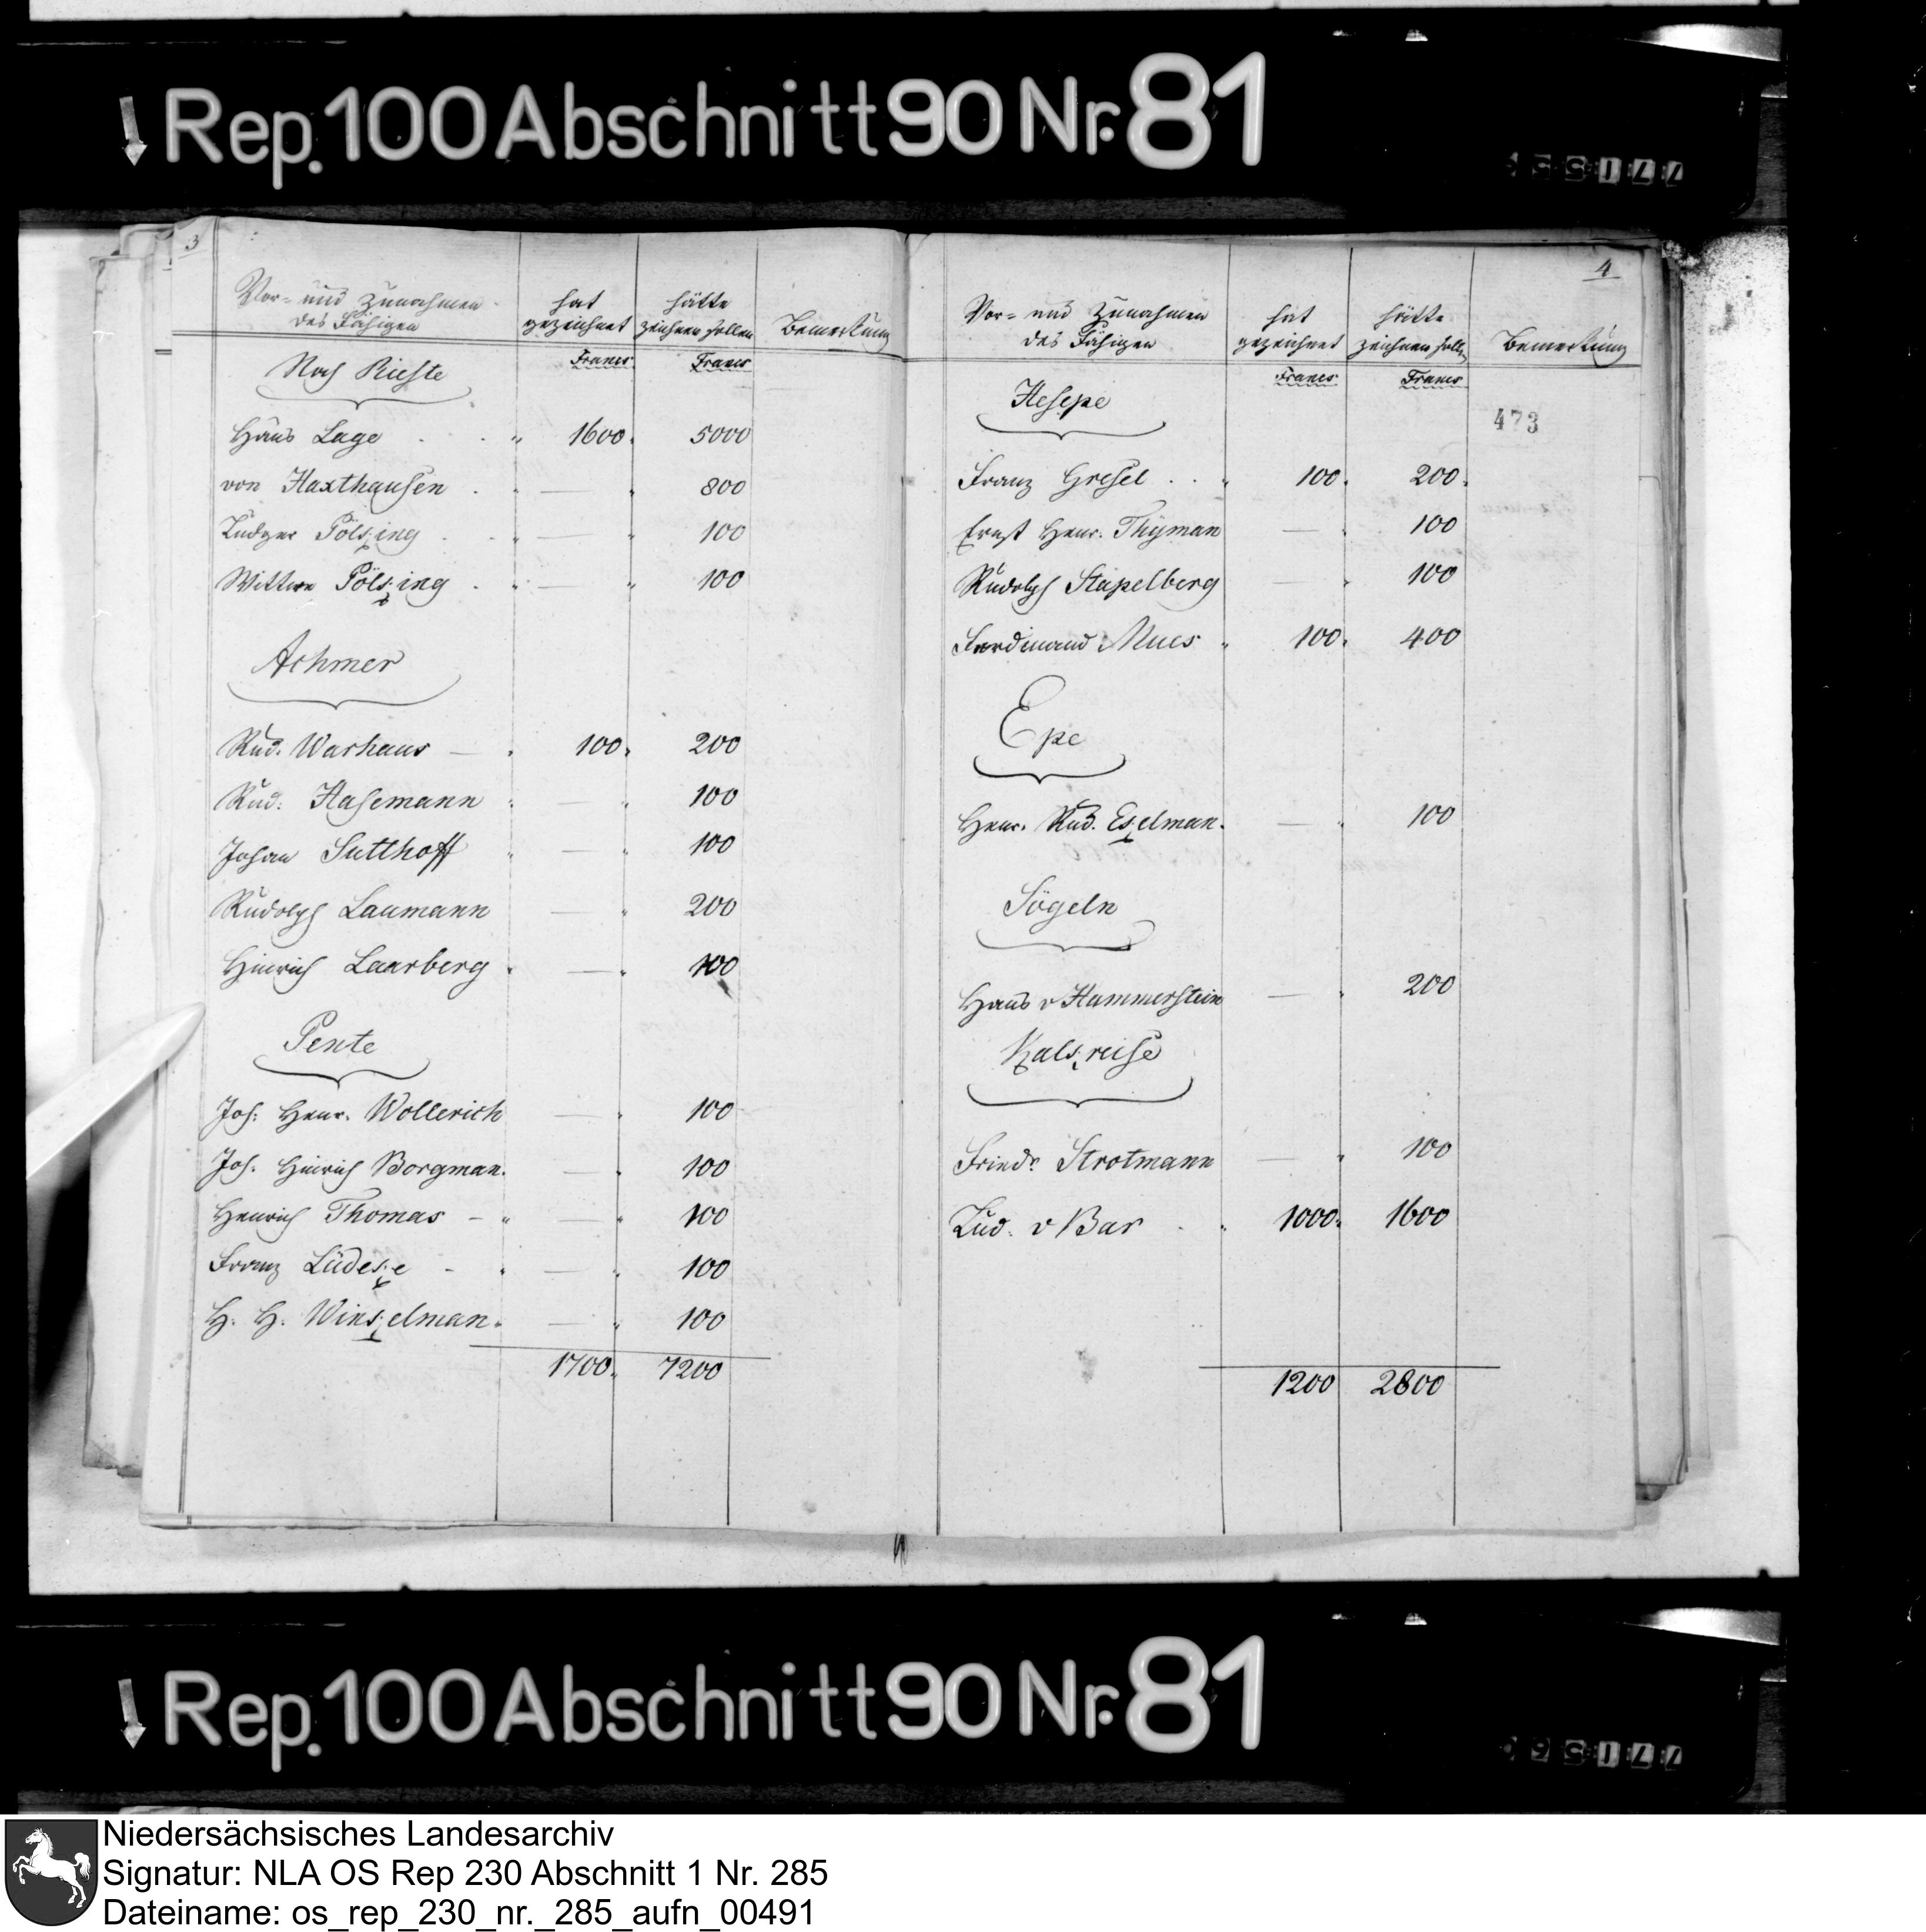 Rep. 100 Abschnitt 90 Nr. 81
3
Vor- und Zunahmen
des Fähigen
hat
gezeichnet
hätte
zeichnen sollen
Bemerkung
Francs
Francs
Noch Rieste
Haus Lage 1600. 5000
von Haxthausen — 800
Ludger Pölking — 100
Wittwe Pölking — 100
Achmer
Rud. Warhaus — 100. 200
Rud: Hasemann — 100
Johan Sutthoff — 100
Rudolph Laumann — 200
Hinrich Laarberg — 100
Pente
Joh: Henr. Wollerich — 100
Joh. Hinrich Borgman. — 100
Henrich Thomas — 100
Franz Lüdeke — 100
H. H. Winkelman. — 100
1700. 7200
4
Vor- und Zunahmen
des Fähigen
hat
gezeichnet
hätte
zeichnen sollen
Bemerkung
Francs
Francs
473
Hesepe
Franz Gresel 100. 200.
Ernst Henr. Thÿman — 100
Rudolph Stapelberg — 100
Ferdinand Mues 100. 400
Epe
Henr. Rud. Eskelman. — 100
Sögeln
Haus v Hammerstein — 200
Kalkreise
Friedr Strotmann — 100
Lud. v Bar 1000. 1600
1200 2800
Rep. 100 Abschnitt 90 Nr. 81
Niedersächsisches Landesarchiv
Signatur: NLA OS Rep 230 Abschnitt 1 Nr. 285
Dateiname: os_rep_230_nr._285_aufn_00491